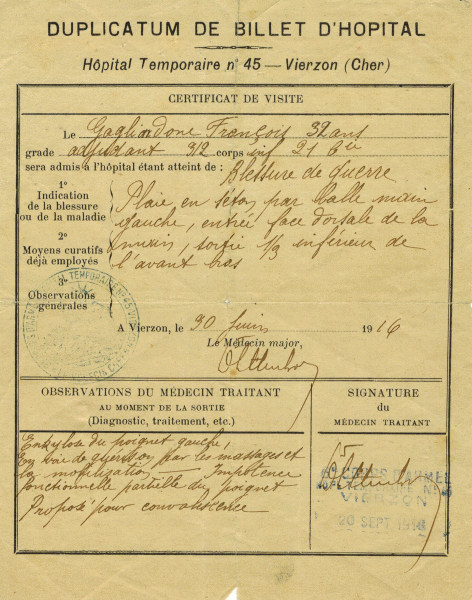 DUPLICATUM DE BILLET D'HOPITAL
Hôpital Temporaire n° 45 — Vierzon (Cher)
CERTIFICAT DE VISITE
Le Gagliardone François 32 ans
grade adjudant 312 corps inf 21 Cie
sera admis à l'hôpital étant atteint de : Blessure de guerre
1°
Indication
de la blessure
ou de la maladie
Plaie en séton par balle main
gauche, entrée face dorsale de la
main, sortie 1/3 inférieur de
l'avant bras
2°
Moyens curatifs
déjà employés
3°
Observations
générales
A Vierzon, le 30 Juin 1916
Le Médecin major,
OBSERVATIONS DU MÉDECIN TRAITANT
AU MOMENT DE LA SORTIE
(Diagnostic, traitement, etc.)
SIGNATURE
du
MÉDECIN TRAITANT
Ankylose du poignet gauche,
En voie de guérison par les massages et
la mobilisation — Impotence
fonctionnelle partielle du poignet
Proposé pour convalescence
VIERZON
20 SEPT. 1916